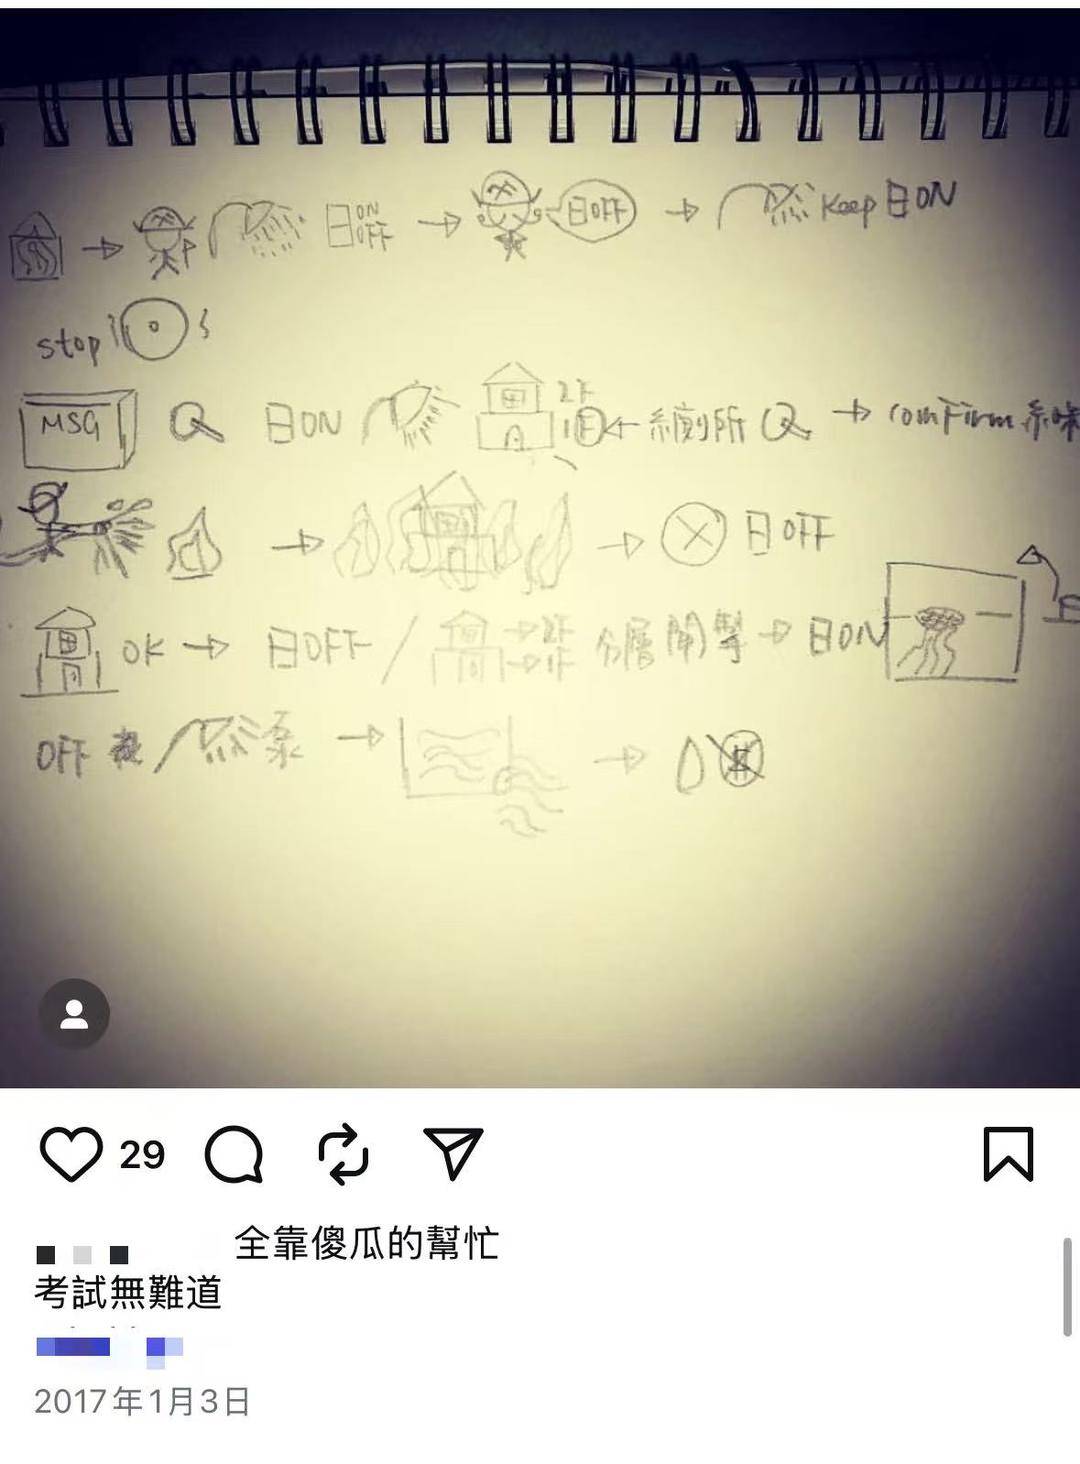 日 ON OFF 日OFF keep 日ON
stop
MSG 日ON 2F 1F ←糸廁所 → comfirm
日OFF
OK → 日OFF / → 2F → 1F 分層開掣 → 日ON
OFF / 泵
29
全靠傻瓜的幫忙
考試無難道
2017年1月3日